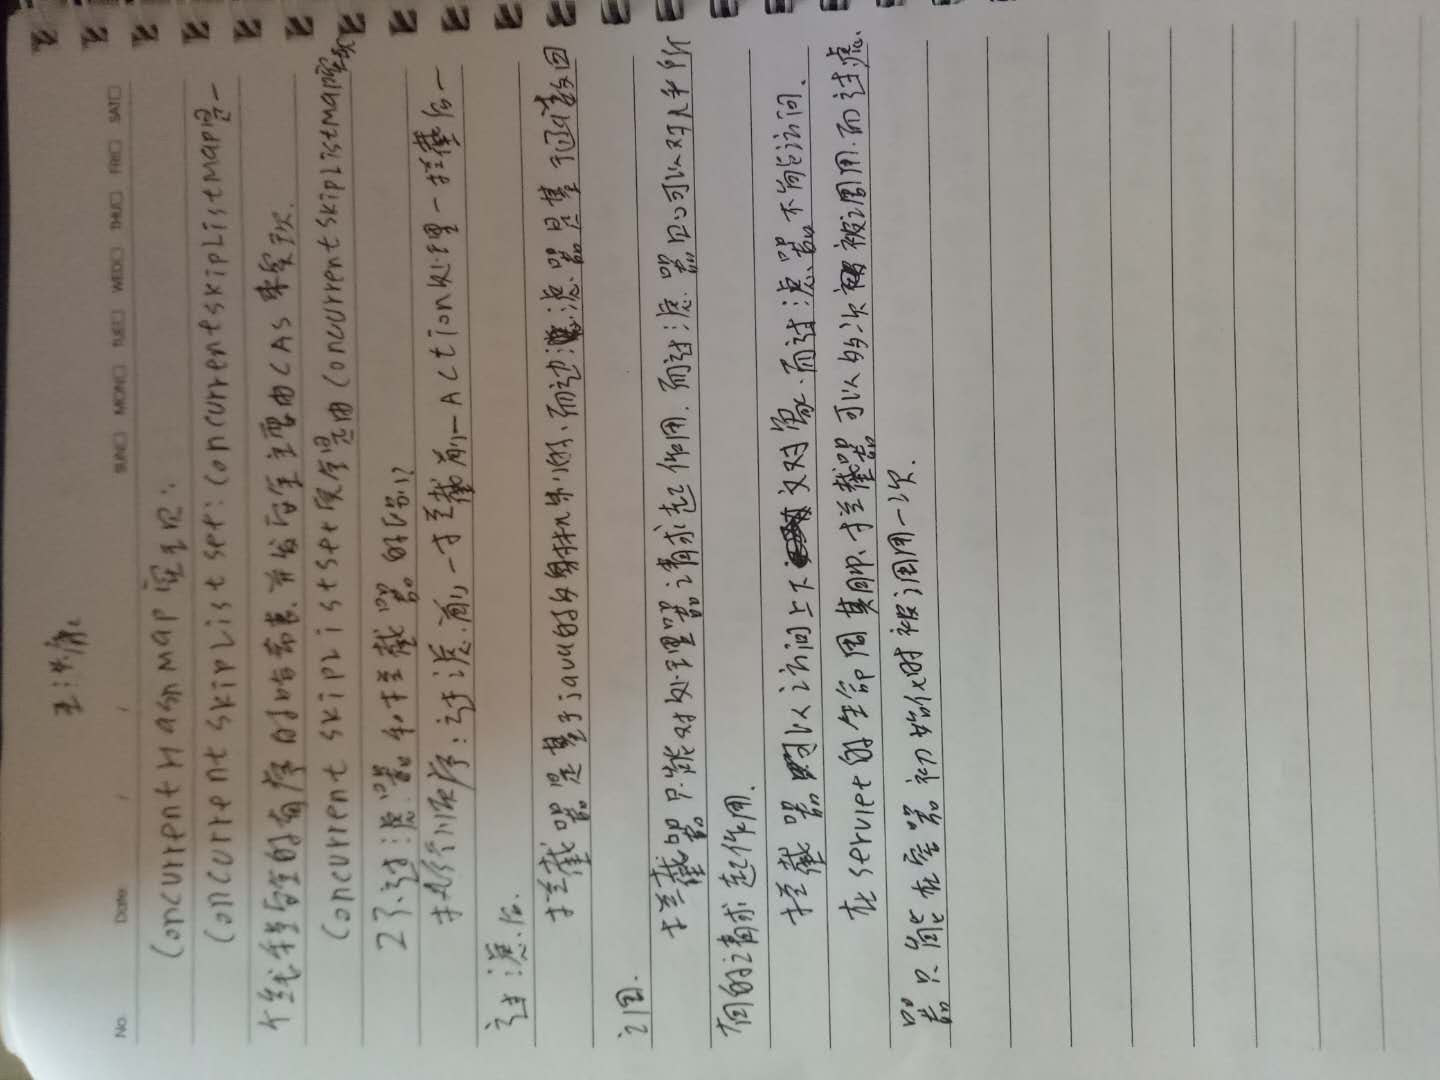 No.
Date / /
SUN□ MON□ TUE□ WED□ THU□ FRI□ SAT□
concurrentHashMap 实现:
concurrent skiplist set: concurrentskiplistmap是一
个线程安全的有序的哈希表.并发安全主要由CAS来实现.
concurrent skiplistset 实现是由concurrentskiplistmap实现
27.过滤器和拦截器的区别?
执行顺序:过滤前—拦截前—Action处理—拦截后—
过滤后.
拦截器是基于java的反射机制的.而过滤器是基于函数回
调.
拦截器只能对处理器请求起作用.而过滤器可以对几乎所
有的请求起作用.
拦截器可以访问上下文对象.而过滤器不能访问.
在servlet的全部周期中.拦截器可以多次被调用.而过滤
器只能在容器初始化时被调用一次.